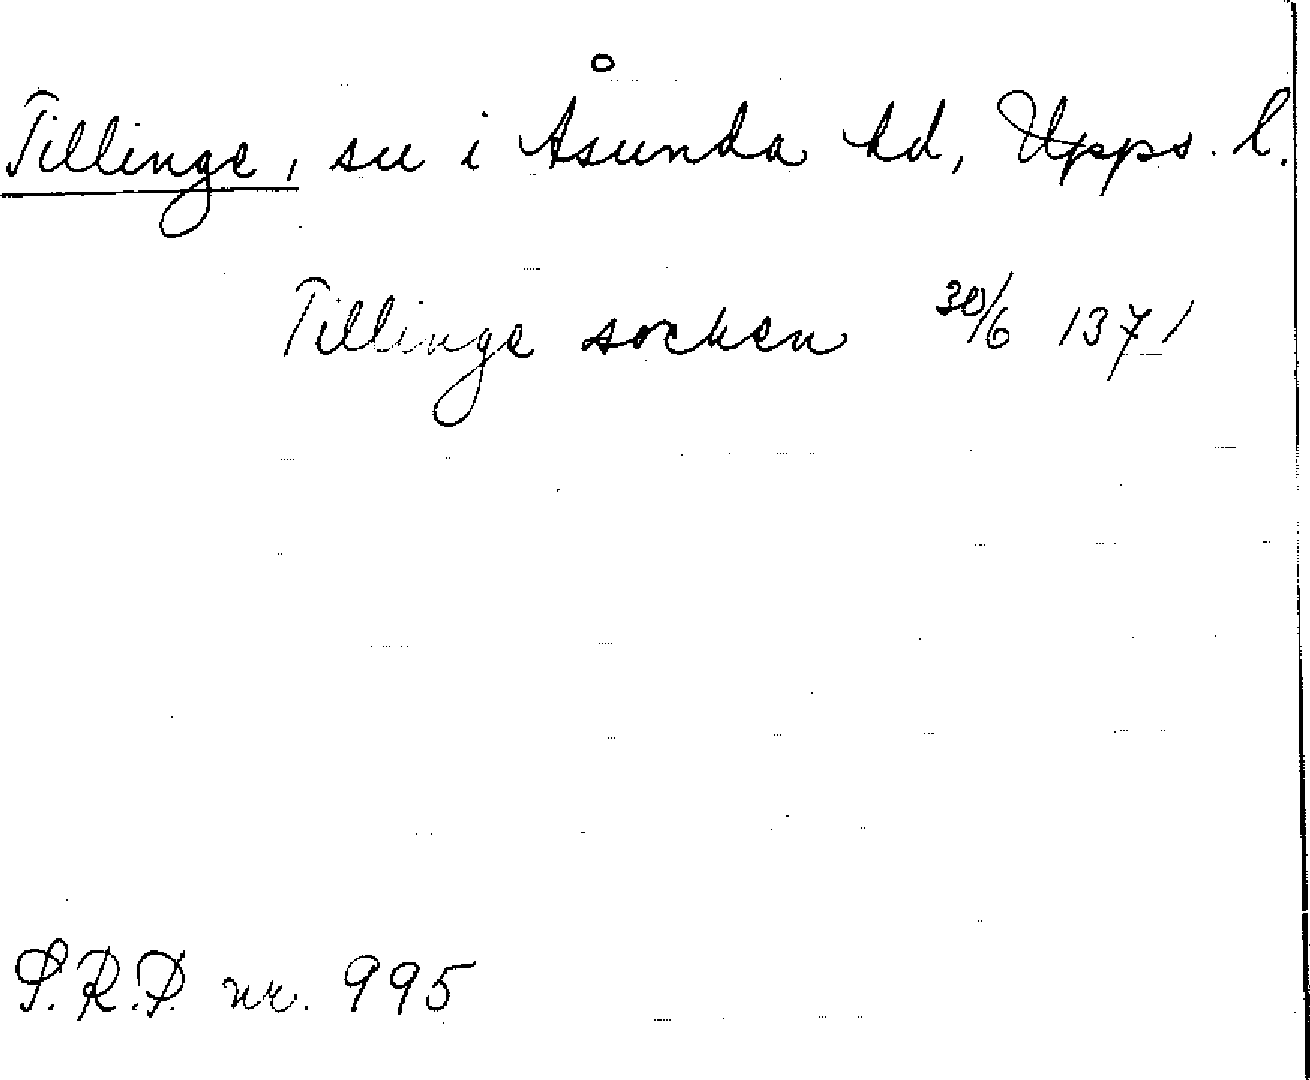 Tillinge, sn i Åsunda hd, Upps. l.
Tillinge socken 30/6 1371
S.R.P. nr. 995